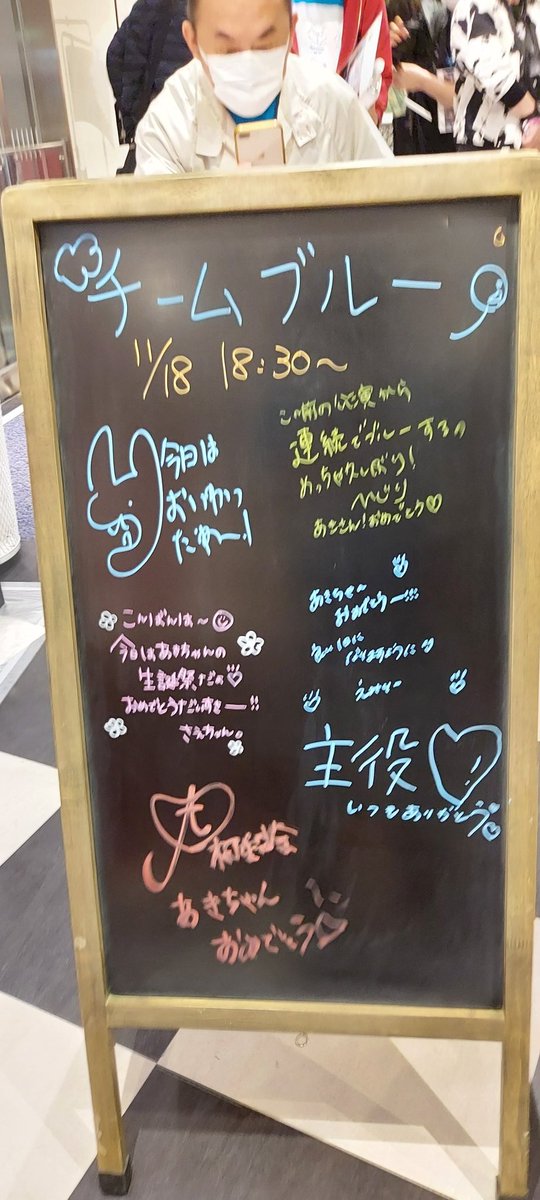 チームブルー
11/18 18:30〜
今日は
おいわい
だねー!
この前の公演から
連続でブルーするの
めっちゃ久しぶり!
あきさん!おめでとう♡
こんばんは〜
今日はあきちゃんの
生誕祭だよ♡
おめでとうだいすきーー!!
さえちゃん。
おめでとうーー!!!
主役
いつもありがとう
あきちゃん
おめでとう